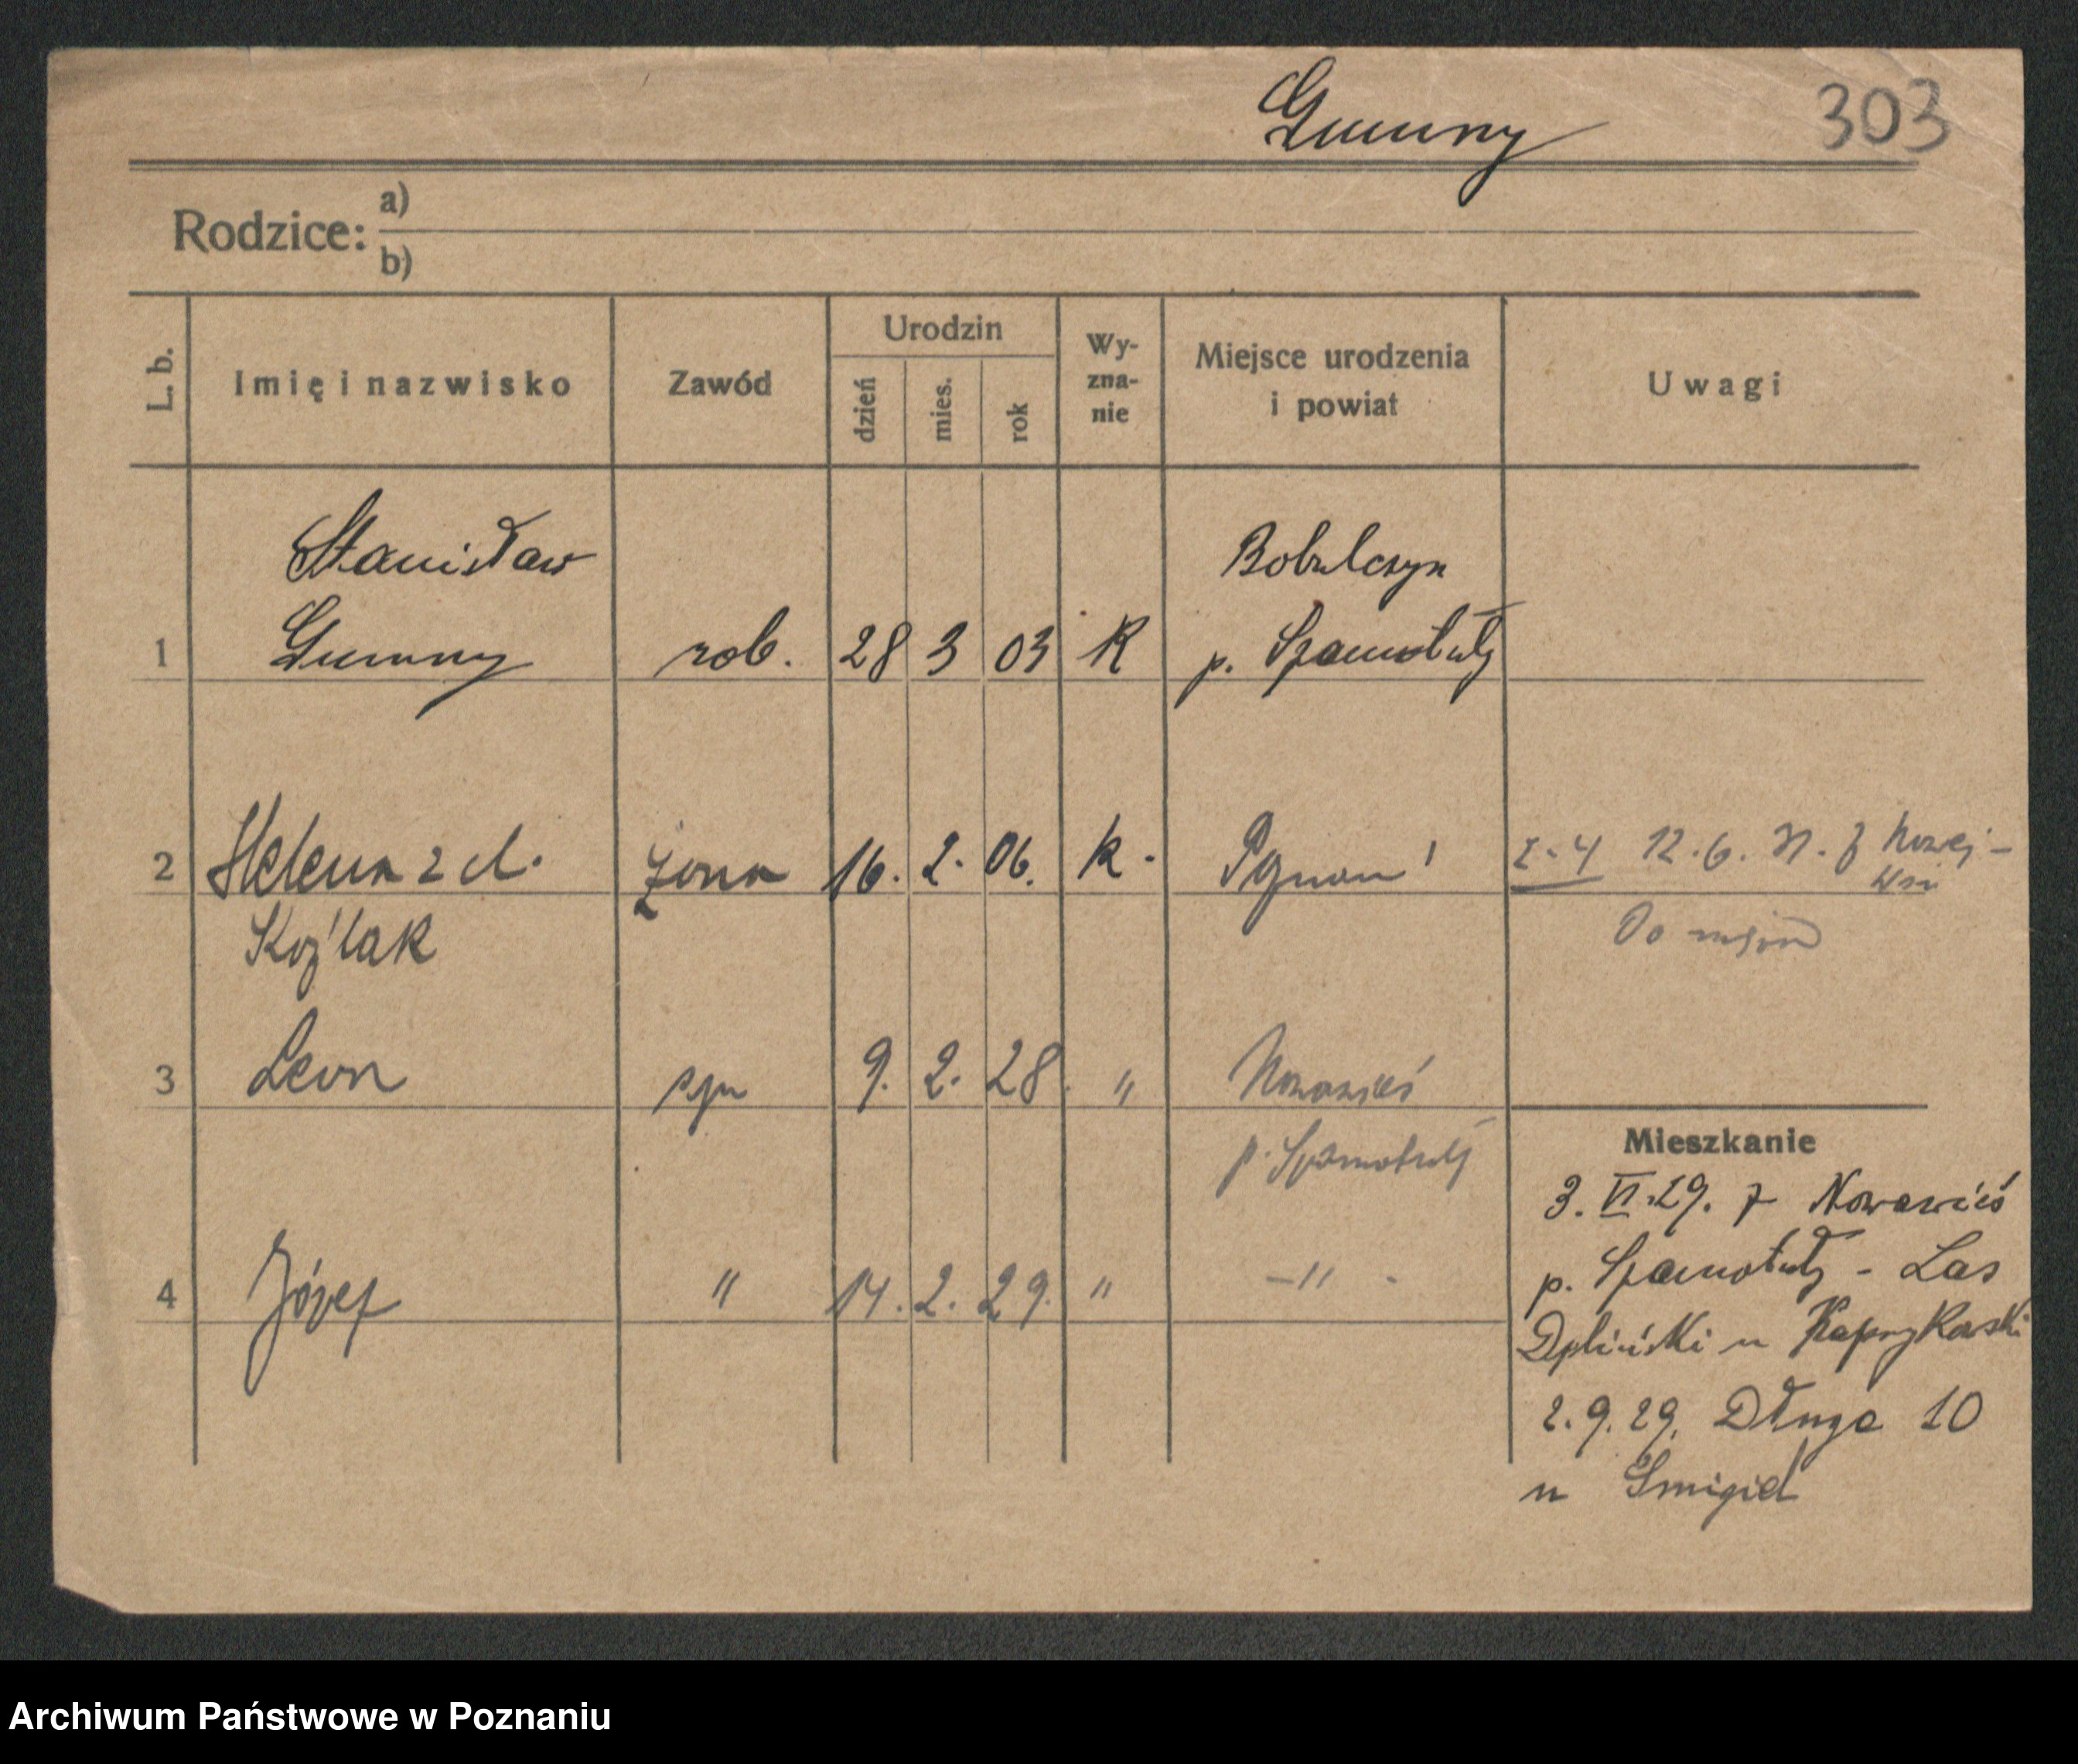 Gumny 303
Rodzice:
a)
b)
L. b.
Imię i nazwisko
Zawód
Urodzin
dzień
mies.
rok
Wy-
zna-
nie
Miejsce urodzenia
i powiat
Uwagi
Stanisław Bobulczyn
1 Gumny rob. 28 3 03 K p. Szamotuły
2 Helena z d. żona 16. 2. 06. k. Poznań 2-4 12.6. 31. z Nowej-
Wsi
Koźlak Do
3 Leon syn 9. 2. 28. " Nowawieś
p. Szamotuły
Mieszkanie
3. VI. 29. z Nowawieś
4 Józef " 14. 2. 29. " -"-
p. Szamotuły - Las
Dębiński u
2. 9. 29. Długa 10
u Śmigiel
Archiwum Państwowe w Poznaniu